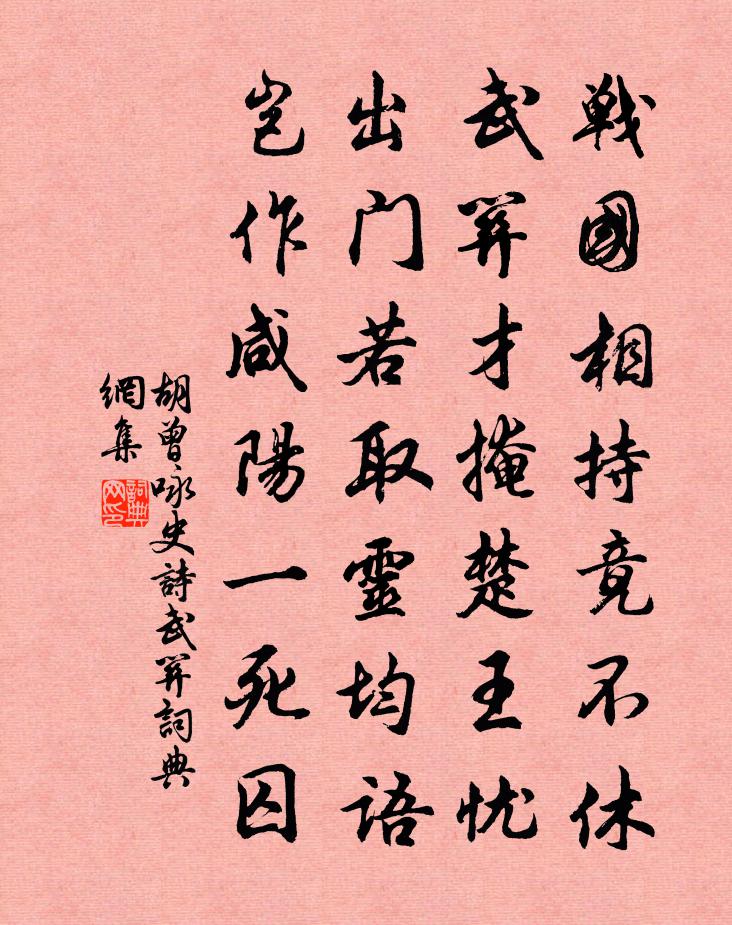 戰國相持竟不休
武關才掩楚王忧
出门若取靈均语
岂作咸陽一死囚
胡曾咏史詩武關詞典
網集
詞典网印